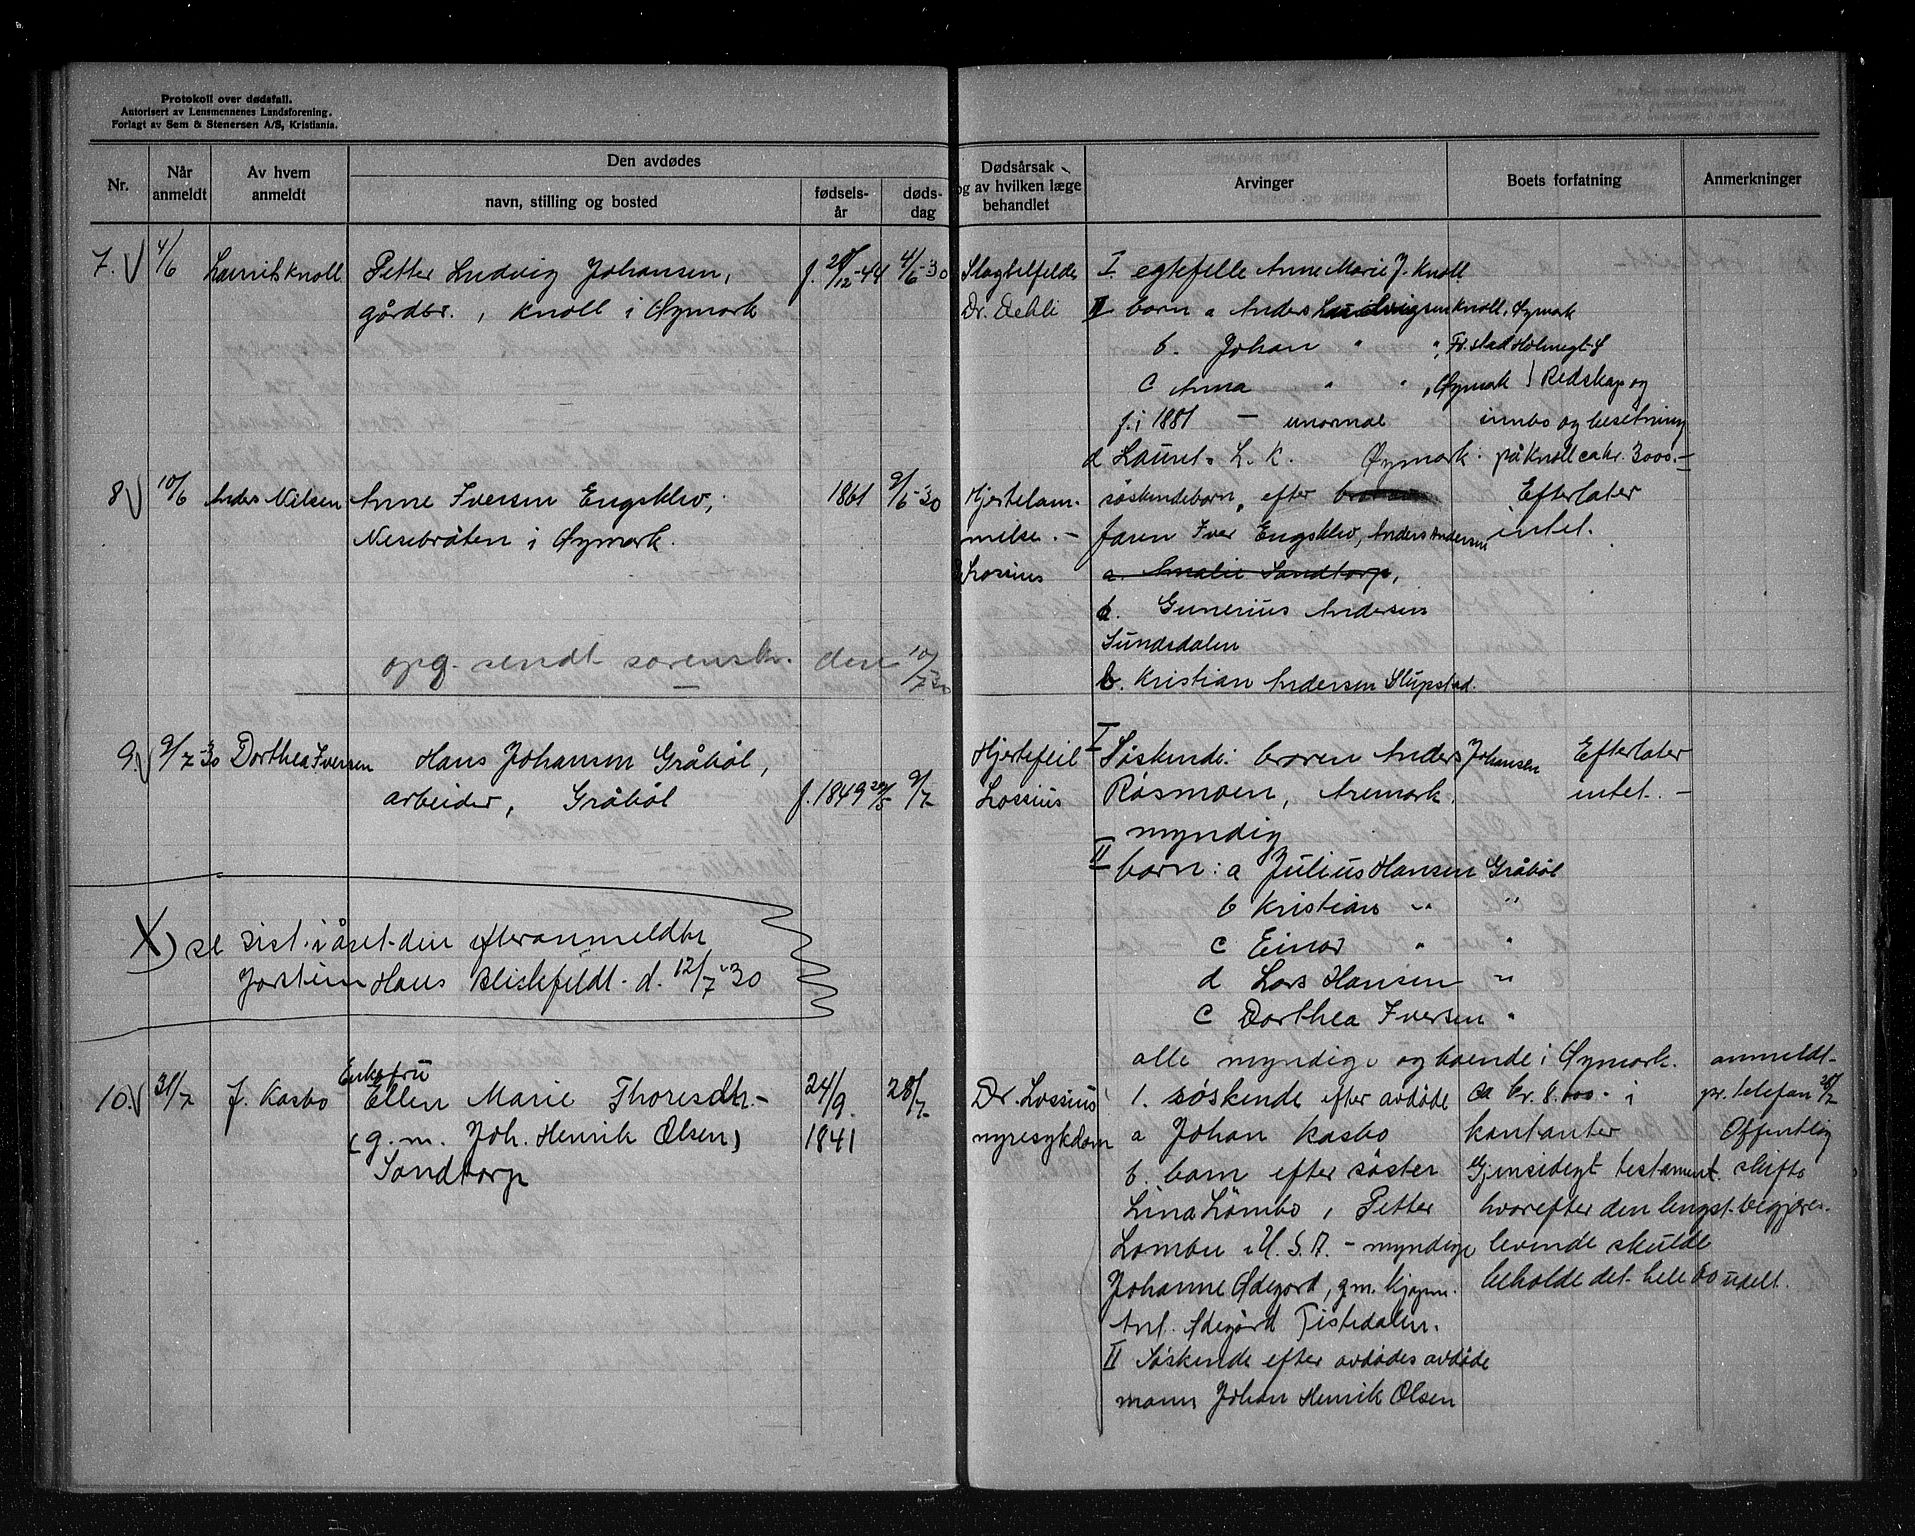 Protokoll over dødsfall.
Autorisert av Lensmennenes Landsforening.
Forlagt av Sem & Stenersen A/S, Kristiania.
Nr.
Når anmeldt
Av hvem anmeldt
Den avdødes
navn, stilling og bosted
fødsels-år
døds-dag
Dødsårsak og av hvilken læge behandlet
Arvinger
Boets forfatning
Anmerkninger
7. 4/6 Laurits Knoll Petter Ludvig Johansen, f. 28/12-44 4/6-30
gårdbr., Knoll i Øymark
Slagtilfelde
Dr. Dehli
I egtefelle Anne Marie J. Knoll
II born a Anders Ludvigsen Knoll, Øymark
b. Johan " ", Fr.stad Holmegt. 8
c Anna " ", Øymark
f. i 1881 – unormal
d Laurits L. K. Øymark.
Redskap og
innbo og besetning
på Knoll ca kr. 3000.–
8 10/6 Anders Nilsen Anne Iversen Engsklev, 1861 9/6-30
Nesebråten i Øymark.
Hjertelam-
melse. –
Lossius
søskendeborn, efter
faren Iver Engsklev, Anders Andersen
a. Amalie Sandtorp,
a. Gunerius Andersen
Sundsdalen
b. Kristian Andersen Slupstad.
Efterlater
intet.
opg. sendt sorenskr. den 10/7-30
9. 9/7-30 Dorthea Iversen Hans Johansen Gråbøl,
arbeider, Gråbøl f. 1849 29/5 9/7
Hjertefeil
Lossius
I
Søskende: broren Anders Johansen
Røsmoen, Aremark.
myndig
II
born: a Julius Hansen Gråbøl
b Kristian " "
c Einar " "
d Lars Hansen "
e Dorthea Iversen "
alle myndige og boende i Øymark.
Efterlater
intet. –
X) se sist i året den efteranmeldte
Jorstein Hans Bliksfeldt d. 12/7-30
10. 31/7 J. Kasbo Enkefru
Ellen Marie Thoresdtr. –
(g. m. Joh. Henrik Olsen)
Sandtorp
24/9.
1841
28/7
Dr. Lossius
nyresykdom
1. søskende efter avdøde
a Johan Kasbo
b. barn efter søster
Lina Lømbo, Petter
Lømbo i U.S.A. – myndige
Johanne Ødegård, g.m.
Ant. Ødegård Tistedalen.
II Søskende efter avdødes avdøde
mann Johan Henrik Olsen
ca kr. 8.000.– i
kontanter
Gjensidigt testament.
hvorefter den lengst-
levende skulde
beholde det hele bo udelt.
anmeldt
pr. telefon 28/7
Offentlig
skifte
begjæres.